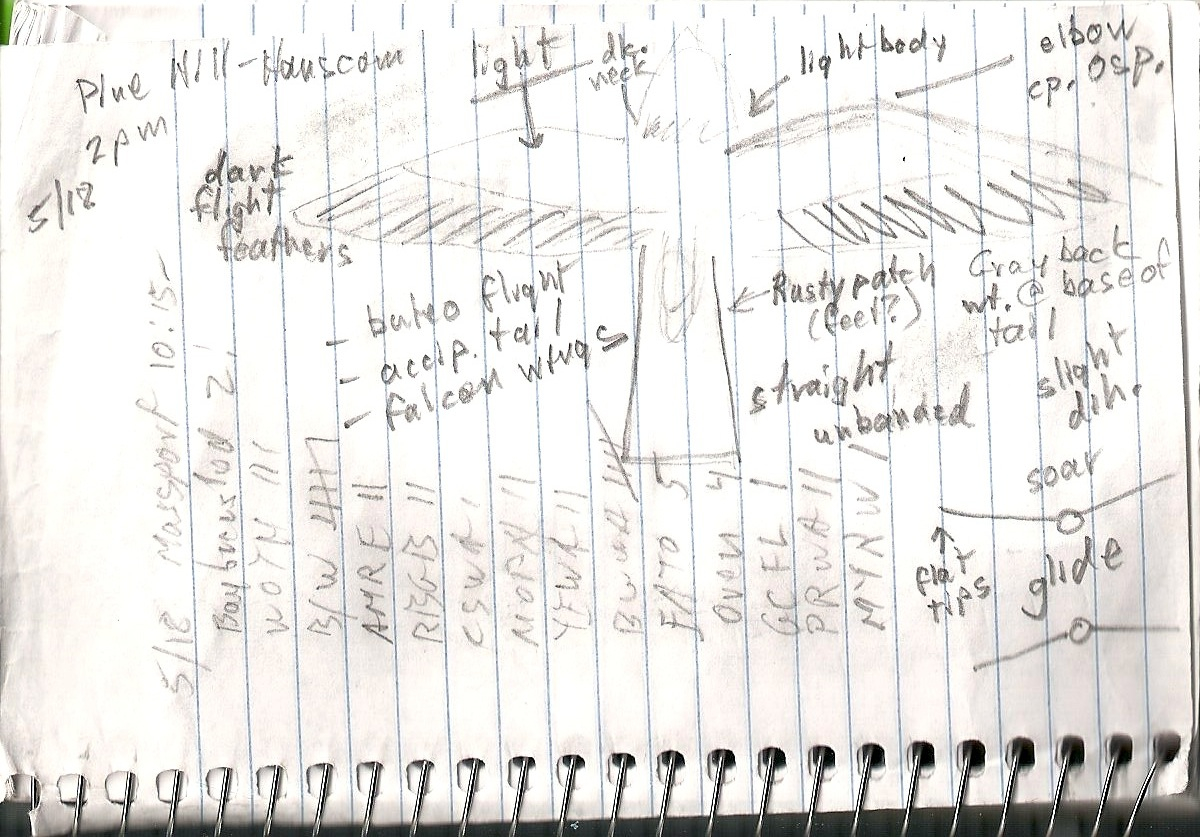 Pine Hill - Hanscom
2 pm
5/18
light
dk.
neck
light body
elbow
cp. osp.
dark
flight
feathers
- buteo flight
- accip. tail
- falcon wings
Rusty patch
(feet?)
straight
unbanded
Gray back
wt. @ base of
tail
slight
dih.
soar
flat
tips
glide
5/18 Massport 10:15-
Baybreasted 2
WOTH III
B/W
AMRE II
RBGB II
CSWA I
MODO II
YRWA II
BWWA
EATO 5
OVEN 4
GCFL I
PRWA II
MYRW I